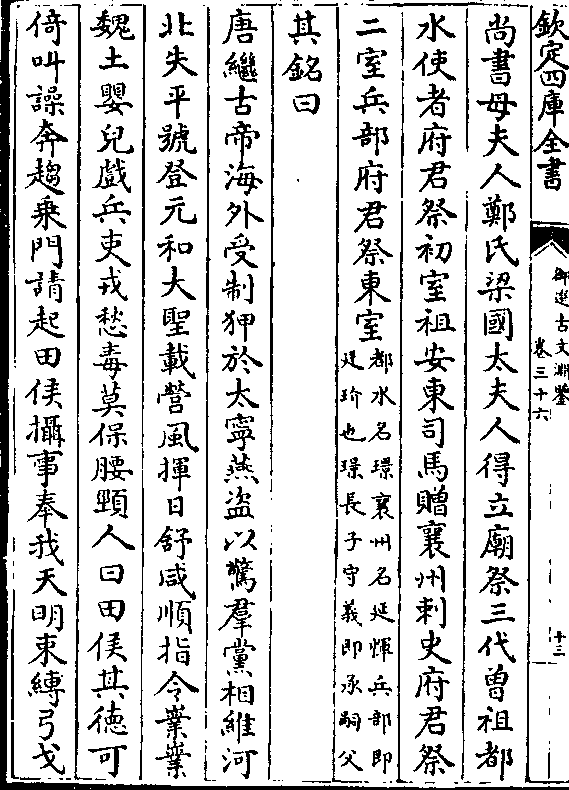 欽定四庫全書
御選古文淵鑒
卷三十六
十三
尚書母夫人鄭氏梁國太夫人得立廟祭三代曾祖都
水使者府君祭初室祖安東司馬贈襄州刺史府君祭
二室兵部府君祭東室都水名璟襄州名延惲兵部即
廷玠也璟長子守義即承嗣父
其銘曰
唐繼古帝海外受制狎於太寧燕盗以驚羣黨相維河
北失平號登元和大聖載營風揮日舒咸順指令業業
魏土嬰兒戲兵吏戎愁毒莫保腰頸人曰田侯其徳可
倚叫譟奔趨乗門請起田侯攝事奉我天明束縛弓戈